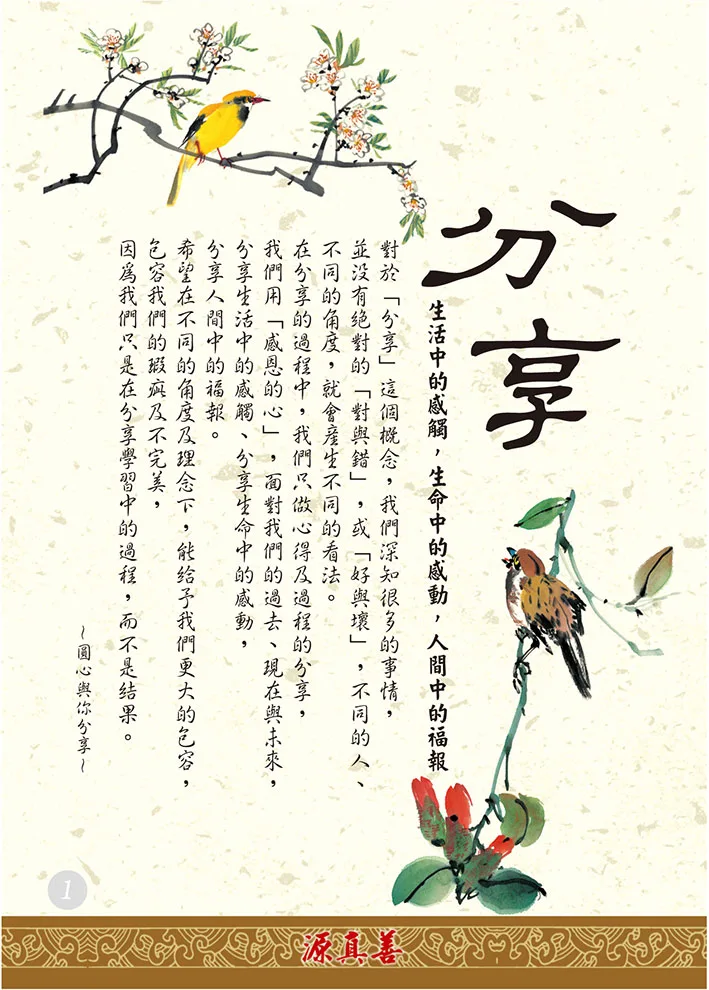 分享
生活中的感觸，生命中的感動，人間中的福報
對於「分享」這個概念，我們深知很多的事情，
並沒有絕對的「對與錯」，或「好與壞」，不同的人、
不同的角度，就會產生不同的看法。
在分享的過程中，我們只做心得及過程的分享，
我們用「感恩的心」，面對我們的過去、現在與未來，
分享生活中的感觸、分享生命中的感動，
分享人間中的福報。
希望在不同的角度及理念下，能給予我們更大的包容，
包容我們的瑕疵及不完美，
因為我們只是在分享學習中的過程，而不是結果。
~圓心與你分享~
1
源真善